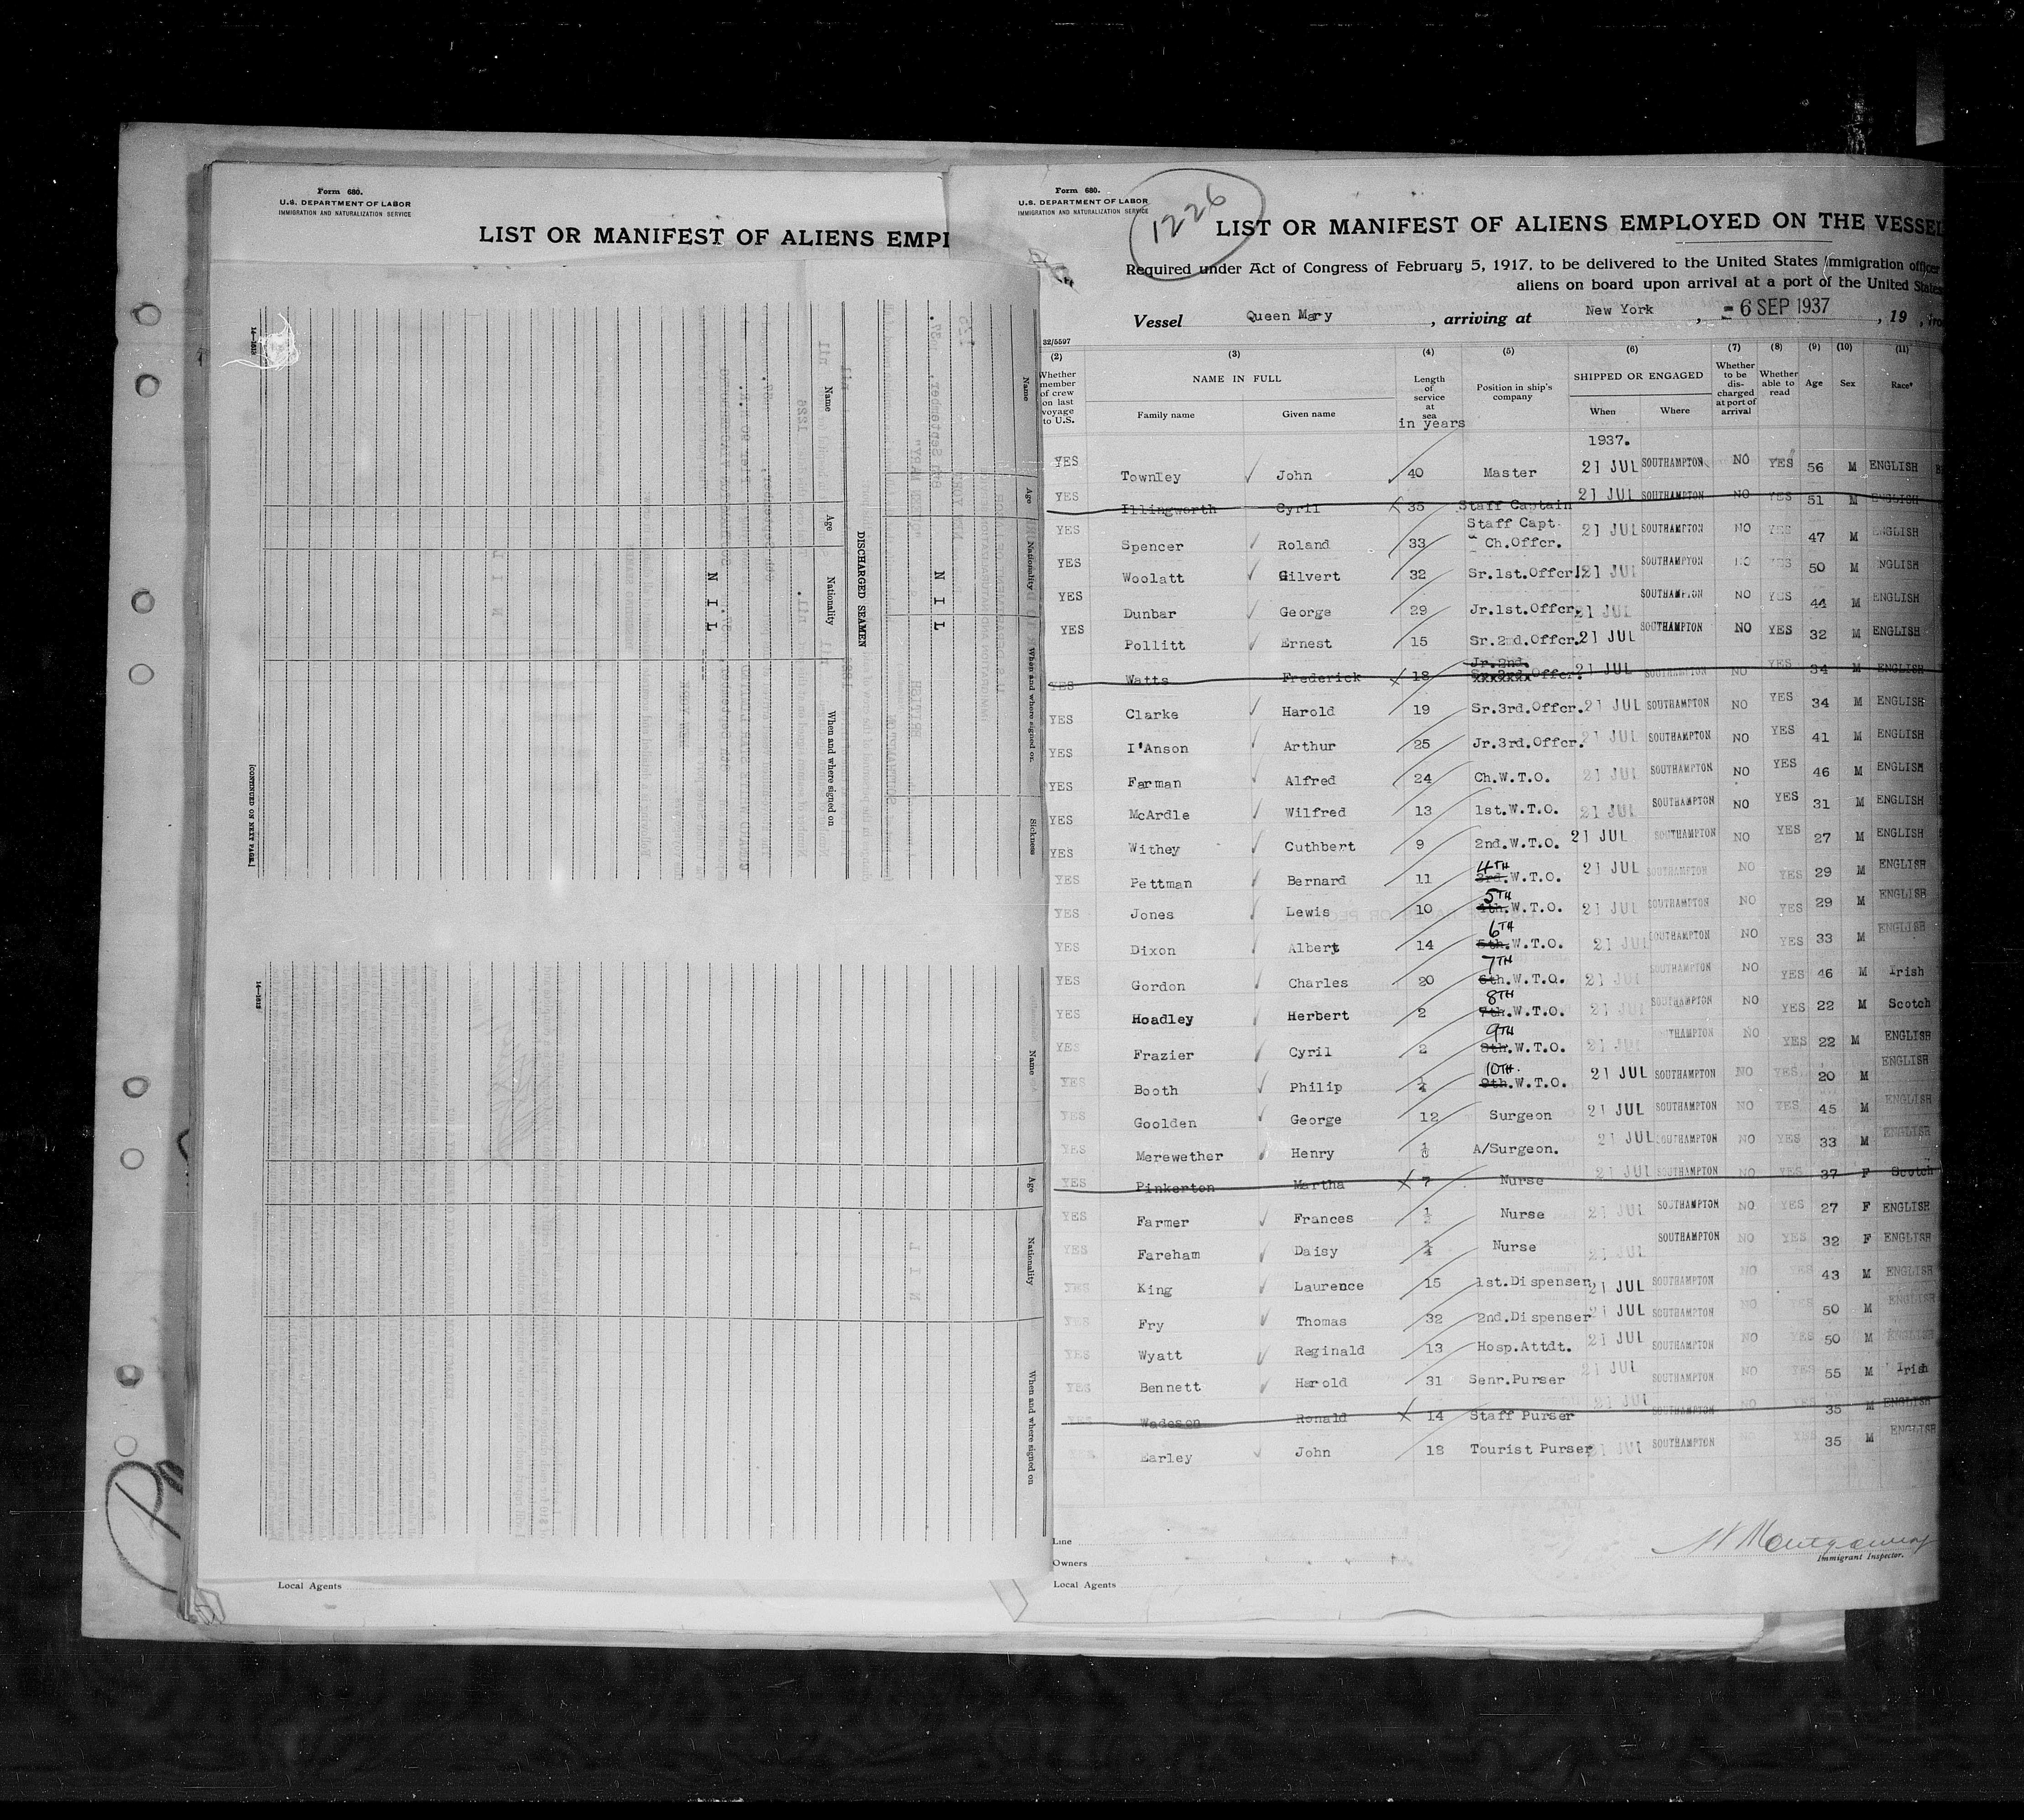 Form 680.
U.S. DEPARTMENT OF LABOR
IMMIGRATION AND NATURALIZATION SERVICE
LIST OR MANIFEST OF ALIENS EMPL
14—1813
Name
Age
Nationality
When and where signed on.
Sickness
NIL
DISCHARGED SEAMEN
Name
Age
Nationality
When and where signed on
NIL
[CONTINUED ON NEXT PAGE.]
14—1813
Name
Age
Nationality
When and where signed on
NIL
Local Agents
Form 680.
U.S. DEPARTMENT OF LABOR
IMMIGRATION AND NATURALIZATION SERVICE
1226
LIST OR MANIFEST OF ALIENS EMPLOYED ON THE VESSEL
Required under Act of Congress of February 5, 1917, to be delivered to the United States immigration officer
aliens on board upon arrival at a port of the United States
Vessel Queen Mary, arriving at New York, - 6 SEP 1937, 19 , from
32/5597
(2) (3) (4) (5) (6) (7) (8) (9) (10) (11)
Whether member of crew on last voyage to U.S. NAME IN FULL Family name Given name Length of service at sea in years Position in ship's company SHIPPED OR ENGAGED When Where Whether to be discharged at port of arrival Whether able to read Age Sex Race*
1937.
YES Townley John 40 Master 21 JUL SOUTHAMPTON NO YES 56 M ENGLISH
YES Illingworth Cyril 35 Staff Captain 21 JUL SOUTHAMPTON NO YES 51 M ENGLISH
YES Spencer Roland 33 Staff Capt. Ch.Offcr. 21 JUL SOUTHAMPTON NO YES 47 M ENGLISH
YES Woolatt Gilvert 32 Sr.1st.Offcr. 21 JUL SOUTHAMPTON NO YES 50 M ENGLISH
YES Dunbar George 29 Jr.1st.Offcr. 21 JUL SOUTHAMPTON NO YES 44 M ENGLISH
YES Pollitt Ernest 15 Sr.2nd.Offcr. 21 JUL SOUTHAMPTON NO YES 32 M ENGLISH
YES Watts Frederick 18 Jr.2nd. Offcr. 21 JUL SOUTHAMPTON NO YES 34 M ENGLISH
YES Clarke Harold 19 Sr.3rd.Offcr. 21 JUL SOUTHAMPTON NO YES 34 M ENGLISH
YES I'Anson Arthur 25 Jr.3rd.Offcr. 21 JUL SOUTHAMPTON NO YES 41 M ENGLISH
YES Farman Alfred 24 Ch.W.T.O. 21 JUL SOUTHAMPTON NO YES 46 M ENGLISH
YES McArdle Wilfred 13 1st.W.T.O. 21 JUL SOUTHAMPTON NO YES 31 M ENGLISH
YES Withey Cuthbert 9 2nd.W.T.O. 21 JUL SOUTHAMPTON NO YES 27 M ENGLISH
YES Pettman Bernard 11 3rd. 4TH W.T.O. 21 JUL SOUTHAMPTON NO YES 29 M ENGLISH
YES Jones Lewis 10 4th. 5TH W.T.O. 21 JUL SOUTHAMPTON NO YES 29 M ENGLISH
YES Dixon Albert 14 5th. 6TH W.T.O. 21 JUL SOUTHAMPTON NO YES 33 M ENGLISH
YES Gordon Charles 20 6th. 7TH W.T.O. 21 JUL SOUTHAMPTON NO YES 46 M Irish
YES Hoadley Herbert 2 7th. 8TH W.T.O. 21 JUL SOUTHAMPTON NO YES 22 M Scotch
YES Frazier Cyril 2 8th. 9TH W.T.O. 21 JUL SOUTHAMPTON NO YES 22 M ENGLISH
YES Booth Philip 1/4 9th. 10TH. W.T.O. 21 JUL SOUTHAMPTON NO YES 20 M ENGLISH
YES Goolden George 12 Surgeon 21 JUL SOUTHAMPTON NO YES 45 M ENGLISH
YES Merewether Henry A/Surgeon. 21 JUL SOUTHAMPTON NO YES 33 M ENGLISH
YES Pinkerton Martha 7 Nurse 21 JUL SOUTHAMPTON NO YES 37 F Scotch
YES Farmer Frances 1/2 Nurse 21 JUL SOUTHAMPTON NO YES 27 F ENGLISH
YES Fareham Daisy Nurse 21 JUL SOUTHAMPTON NO YES 32 F ENGLISH
YES King Laurence 15 1st.Dispenser 21 JUL SOUTHAMPTON NO YES 43 M ENGLISH
YES Fry Thomas 32 2nd.Dispenser 21 JUL SOUTHAMPTON NO YES 50 M ENGLISH
YES Wyatt Reginald 13 Hosp.Attdt. 21 JUL SOUTHAMPTON NO YES 50 M ENGLISH
YES Bennett Harold 31 Senr.Purser 21 JUL SOUTHAMPTON NO YES 55 M Irish
YES Wadeson Ronald 14 Staff Purser 21 JUL SOUTHAMPTON NO YES 35 M ENGLISH
YES Earley John 18 Tourist Purser 21 JUL SOUTHAMPTON YES 35 M ENGLISH
Line
Owners
Local Agents
Montgomery
Immigrant Inspector.